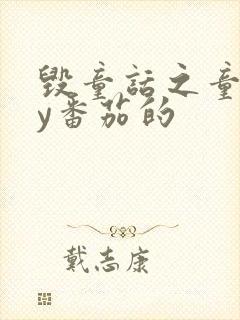 毁童话之童
y番茄的
戴志康